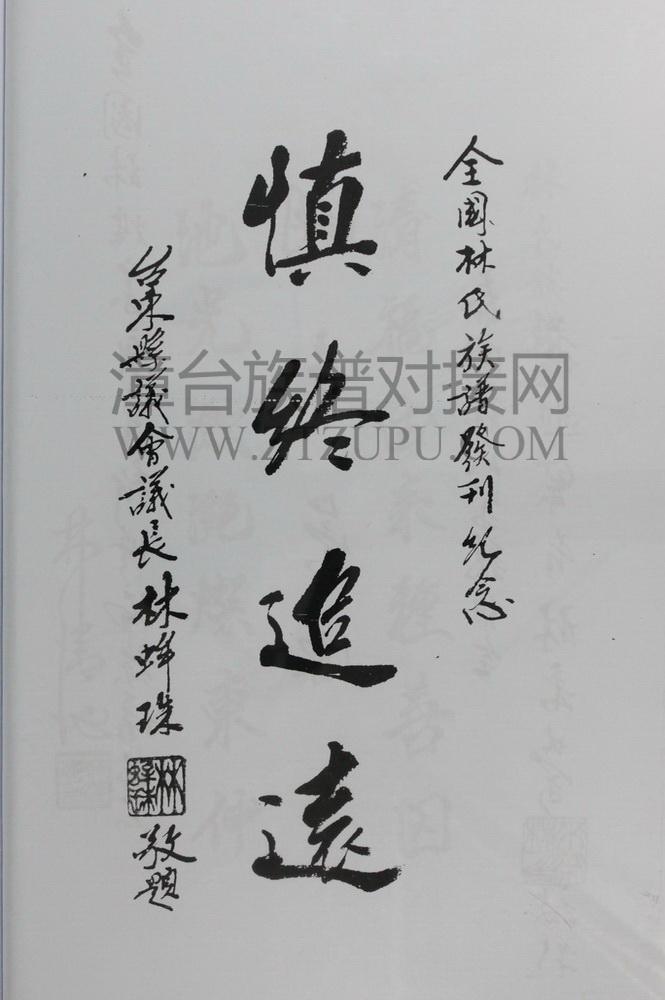 全國林氏族譜發刊紀念
慎終追遠
台東縣議會議長林蚌珠
林蚌珠
敬題
漳台族谱对接网
WWW.ZTZUPU.COM